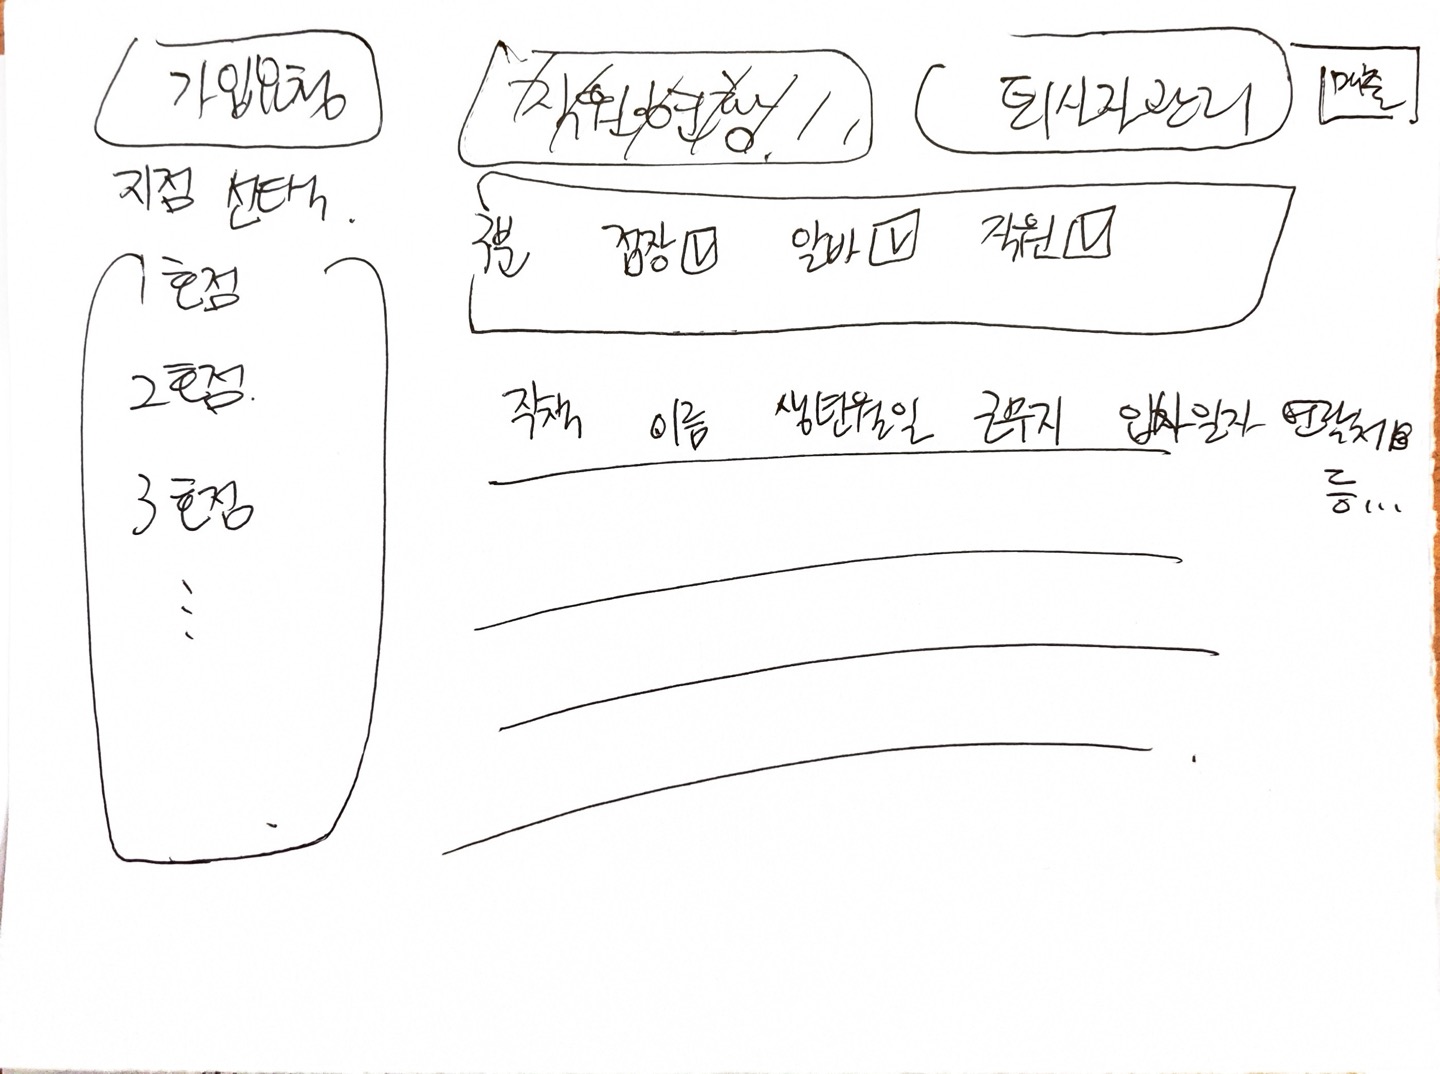 가입요청 직원현황 퇴사자관리 매출
지점 선택.
구분 점장 알바 직원
1호점
2호점.
3호점
직책 이름 생년월일 근무지 입사일자 연락처
등...